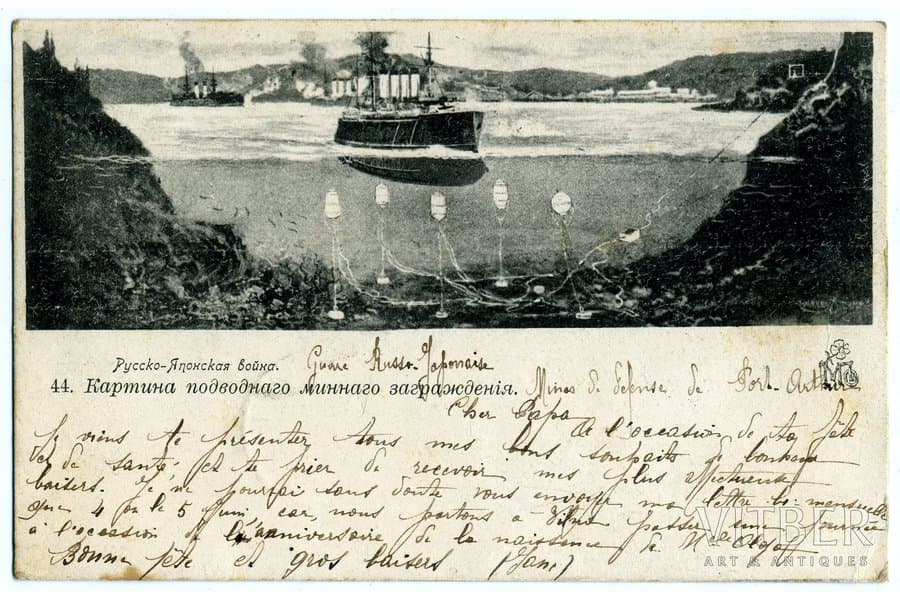 Русско-Японская война.
Guerre Russo-Japonaise
44. Картина подводнаго миннаго загражденія.
Mines de défense de Port-Arthur
Cher Papa
A l'occasion de ta fête
Je viens te présenter tous mes bons souhaits de bonheur
et de santé et te prier de recevoir mes plus affectueux
baisers. Je ne pourrai sans doute vous envoyer ma lettre bi-mensuelle
que 4 ou le 5 Juin car, nous partons à passer une journée
à l'occasion de l'anniversaire de la naissance de
Bonne fête et gros baisers
VITBER
ART & ANTIQUES